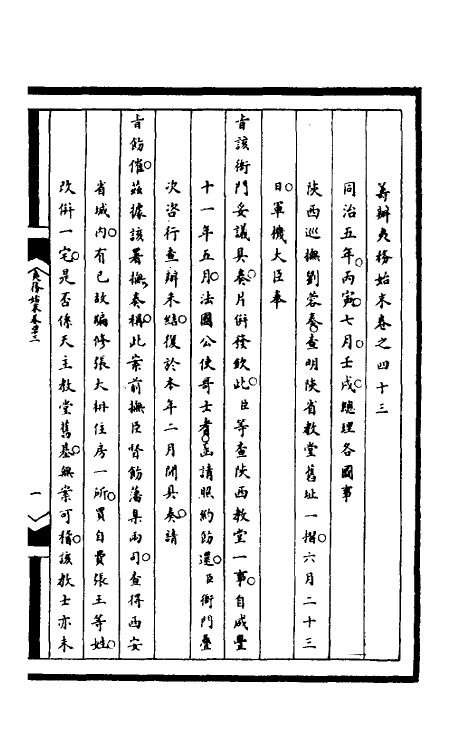 籌辦夷務始末卷之四十三
同治五年。丙寅。七月壬戌。總理各國事
陝西巡撫劉蓉奏。查明陝省教堂舊址一摺。六月二十三
日。軍機大臣奉
旨該衙門妥議具奏。片併發欽此。臣等查陝西教堂一事。自咸豐
十一年五月。法國公使哥士耆。函請照約飭還。臣衙門疊
次咨行查辦未結。復於本年二月開具奏請
旨飭催。茲據該署撫奏稱。此案前撫臣督飭藩臬兩司。查得西安
省城內。有已故編修張大枏住房一所。買自費張王等姓。
改併一宅。是否係天主教堂舊基。無案可稽。該教士亦未
夷務始末卷四十三
一